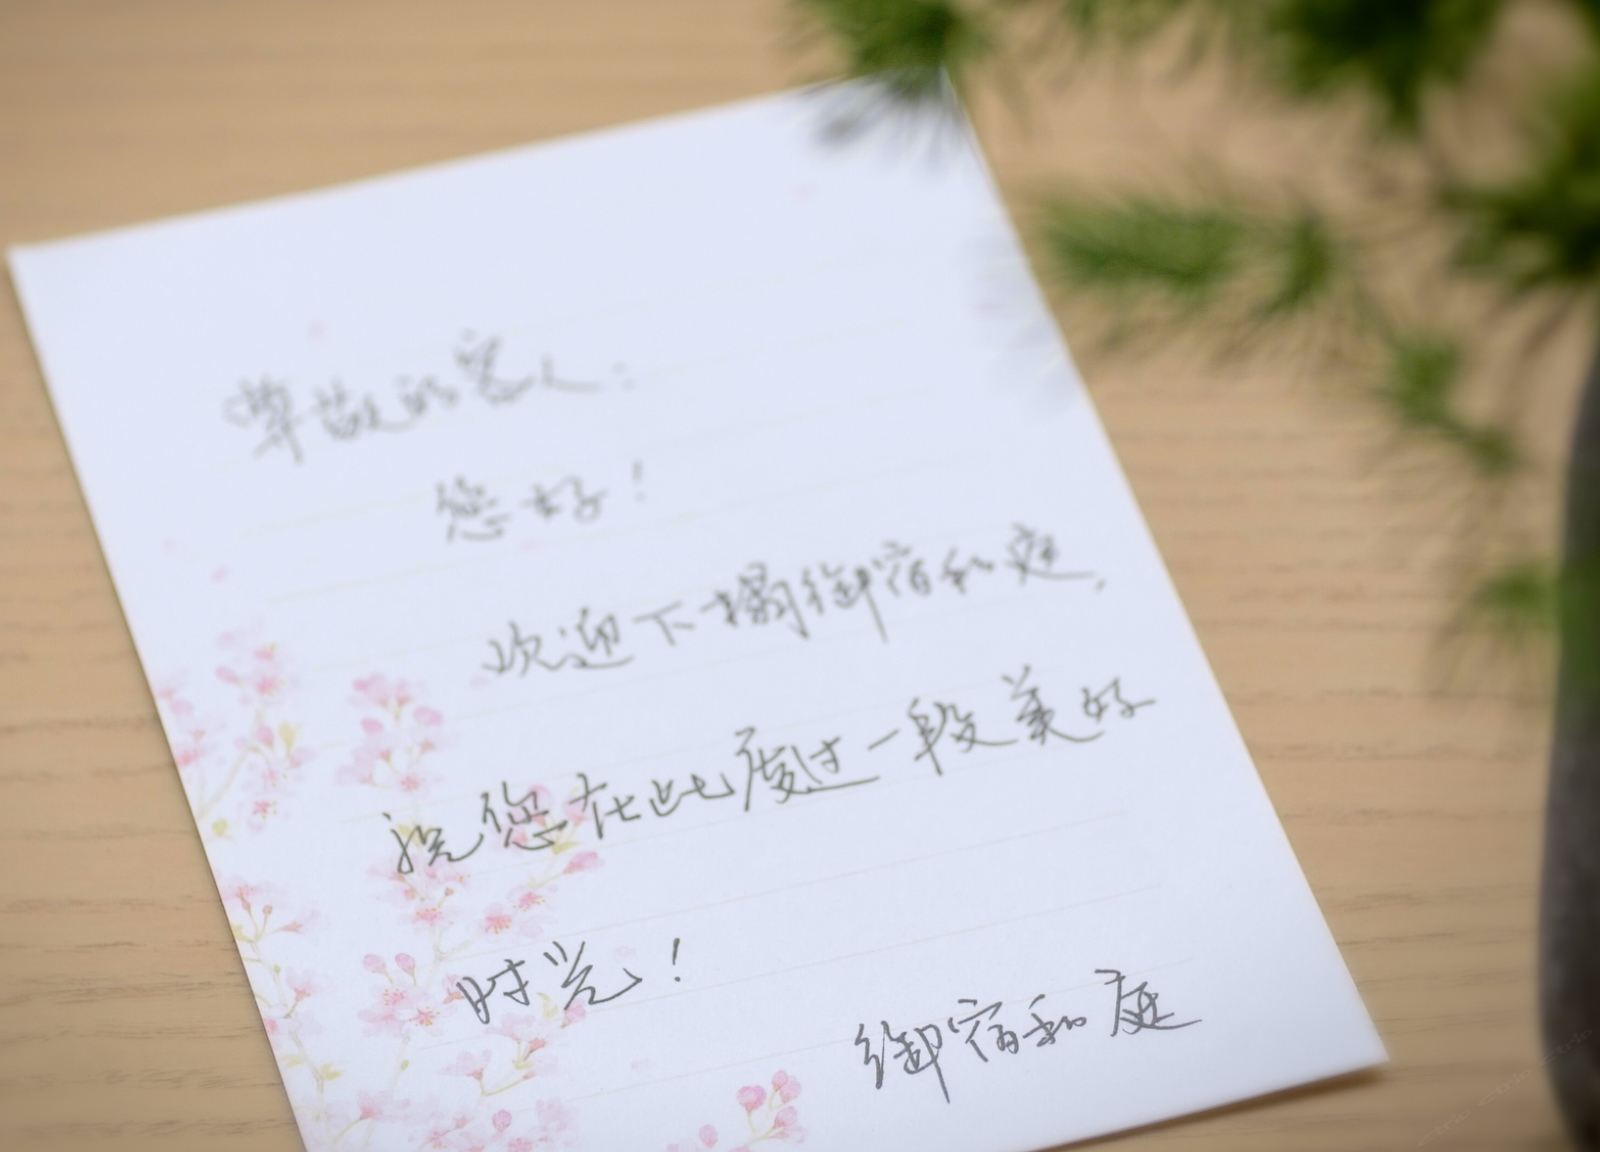 尊敬的客人：
您好！
欢迎下榻御宿和庭，
祝您在此度过一段美好
时光！
御宿和庭
ctrip ctrip ctrip